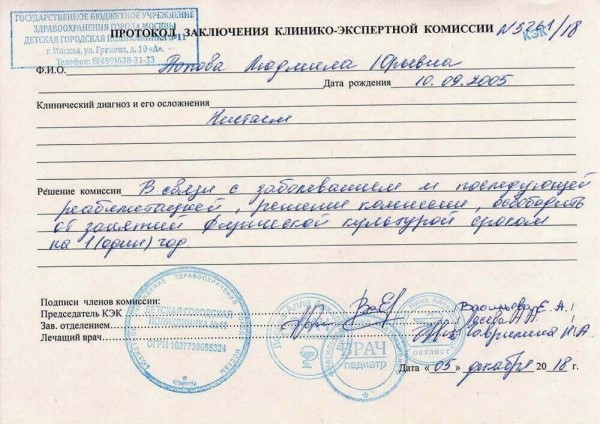 ГОСУДАРСТВЕННОЕ БЮДЖЕТНОЕ УЧРЕЖДЕНИЕ
ЗДРАВООХРАНЕНИЯ ГОРОДА МОСКВЫ
ДЕТСКАЯ ГОРОДСКАЯ
г. Москва, ул. Грекова, д. 10 «А».
Телефон: 8(499)638-31-23
ПРОТОКОЛ ЗАКЛЮЧЕНИЯ КЛИНИКО-ЭКСПЕРТНОЙ КОМИССИИ N3261/18
КЭК
Ф.И.О. Попова Людмила Юрьевна
Дата рождения 10.09.2005
Клинический диагноз и его осложнения
Нистагм
Решение комиссии В связи с заболеванием и последующей
реабилитацией, решение комиссии, освободить
от занятий физической культурой сроком
на 1(один) год.
Подписи членов комиссии:
Председатель КЭК Васильева Е.А.
Зав. отделением
Лечащий врач Гаврилина Н.А.
ДЕТСКАЯ ГОРОДСКАЯ
ОГРН
ВРАЧ
педиатр
окулист
Дата «05» декабря 2018 г.